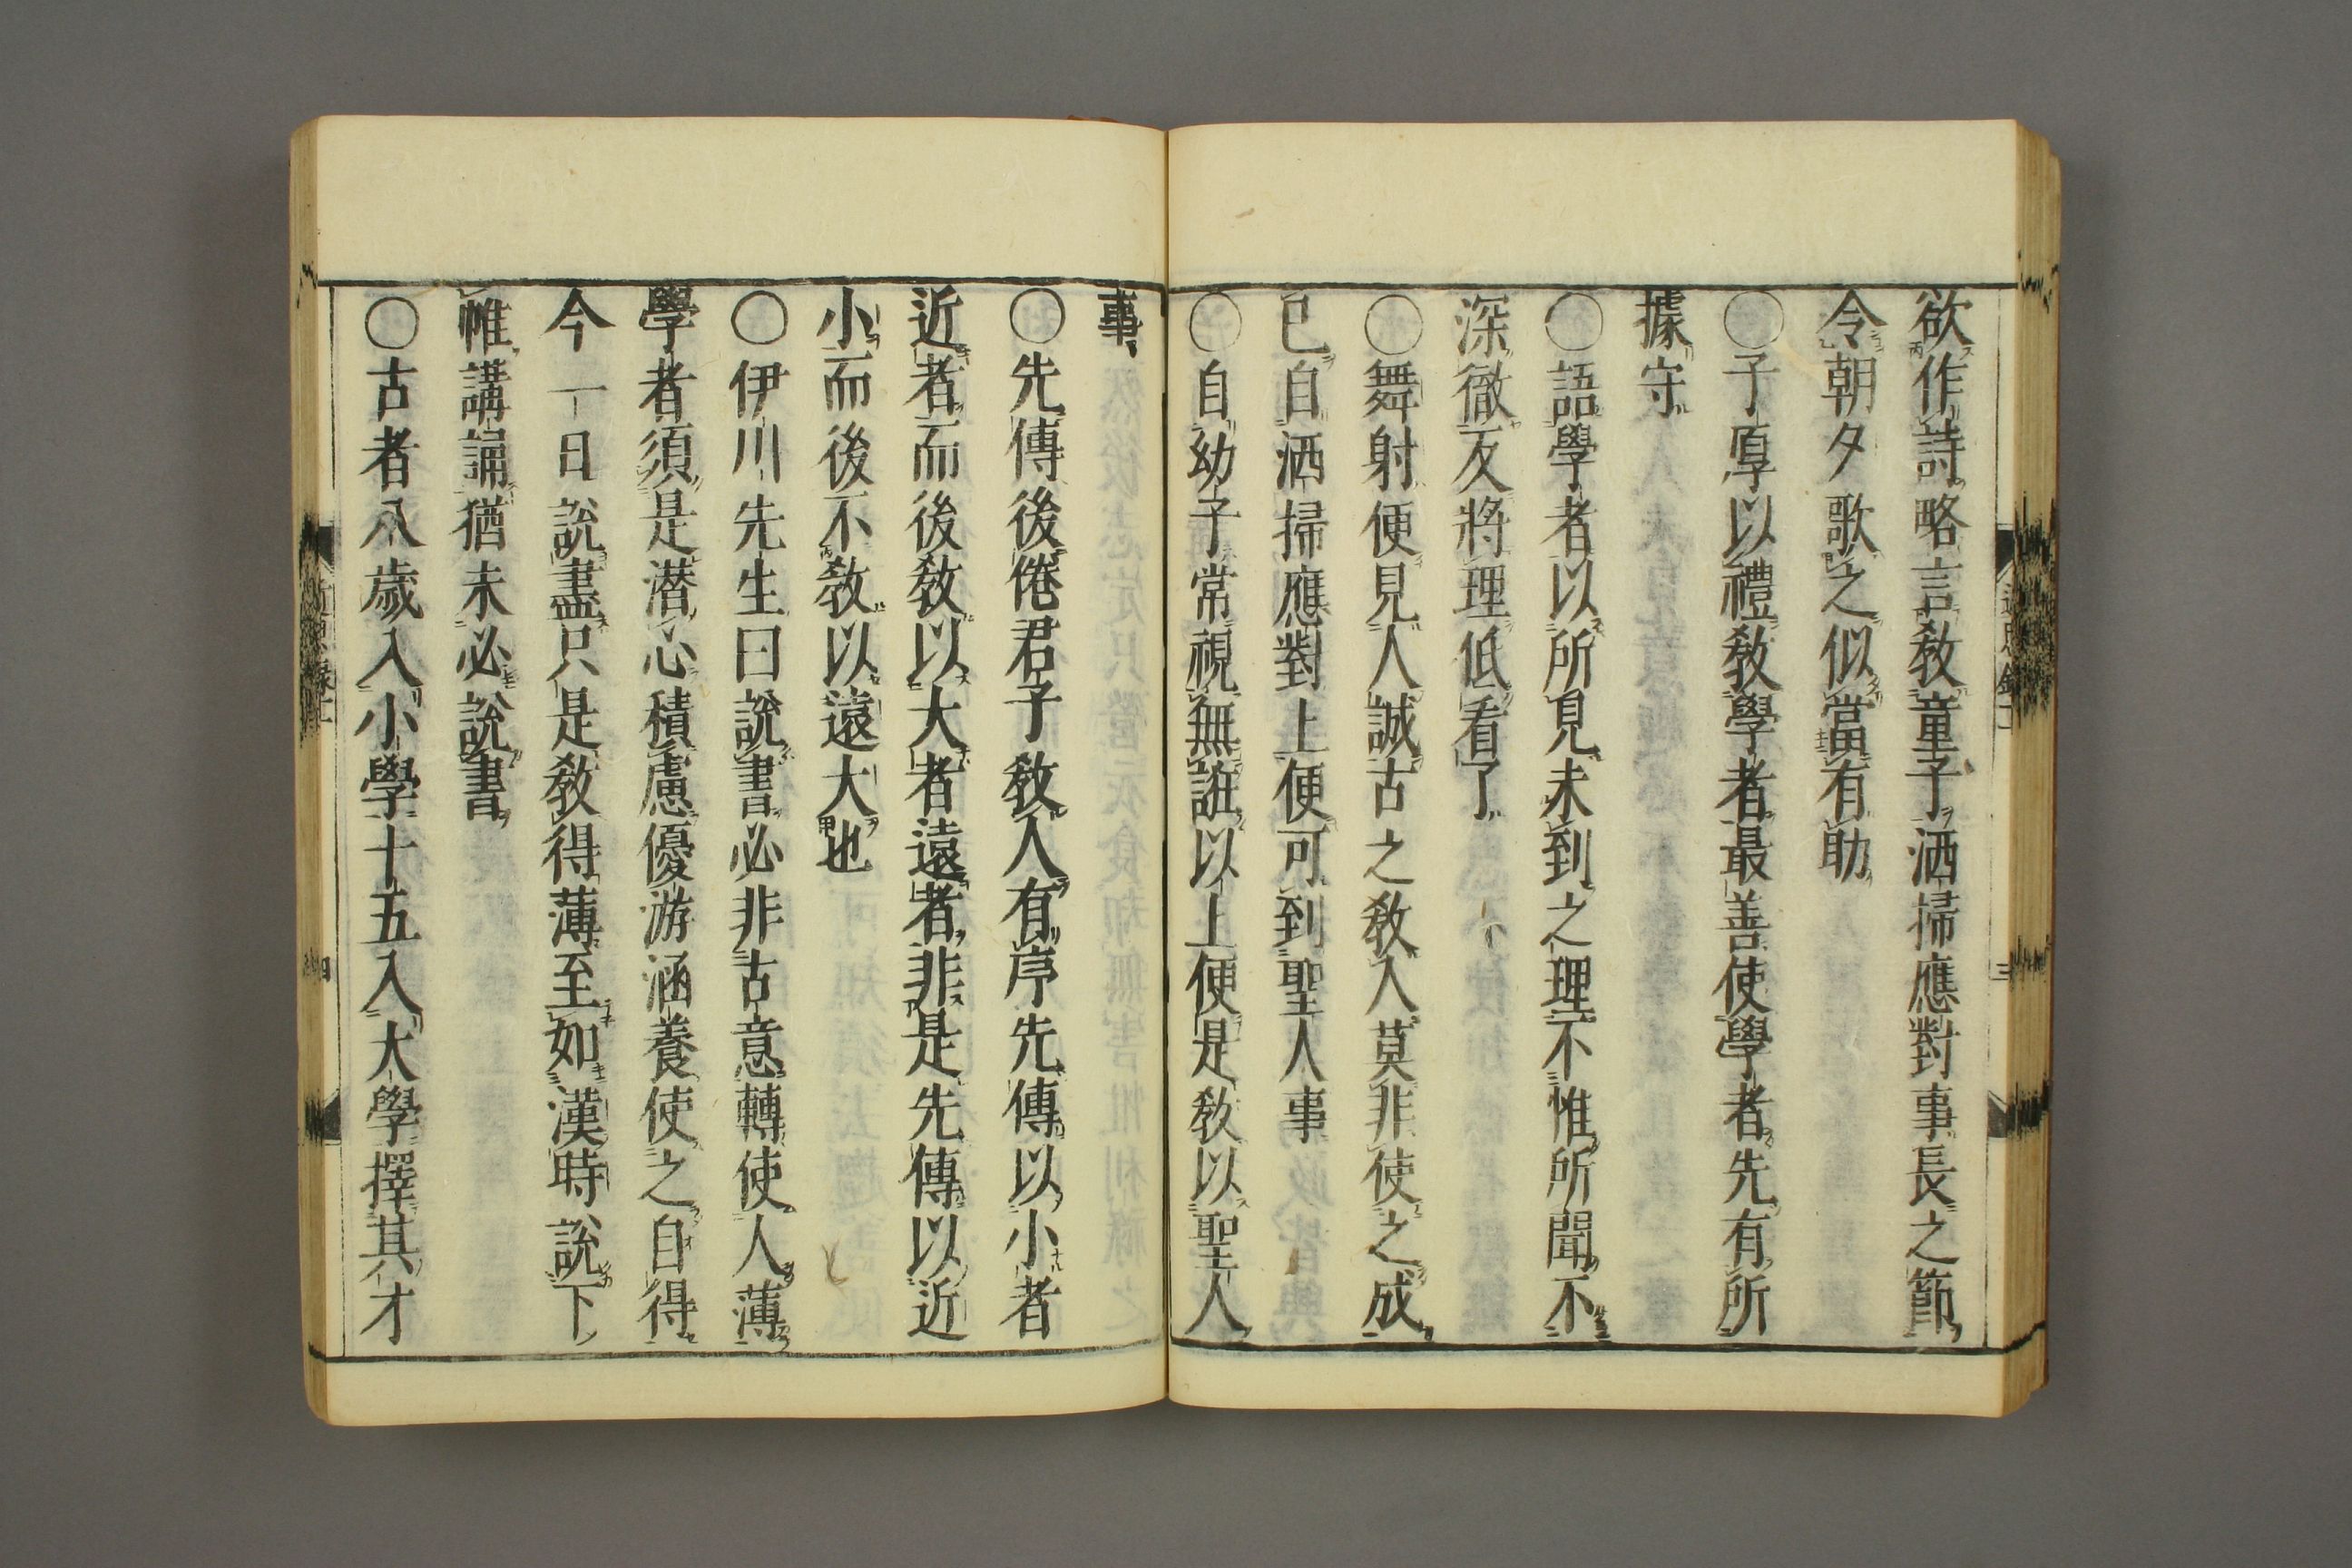 欲作詩略言敎童子洒掃應對事長之節
令朝夕歌之似當有助
〇子厚以禮敎學者最善使學者先有所
據守
〇語學者以所見未到之理不惟所聞不
深徹反將理低看了
〇舞射便見人誠古之敎人莫非使之成
己自洒掃應對上便可到聖人事
〇自幼子常視無誑以上便是敎以聖人
事
〇先傳後倦君子敎人有序先傳以小者
近者而後敎以大者遠者非是先傳以近
小而後不敎以遠大也
〇伊川先生曰說書必非古意轉使人薄
學者須是潛心積慮優游涵養使之自得
今一日說盡只是敎得薄至如漢時說下
帷講誦猶未必說書
〇古者八歲入小學十五入大學擇其才